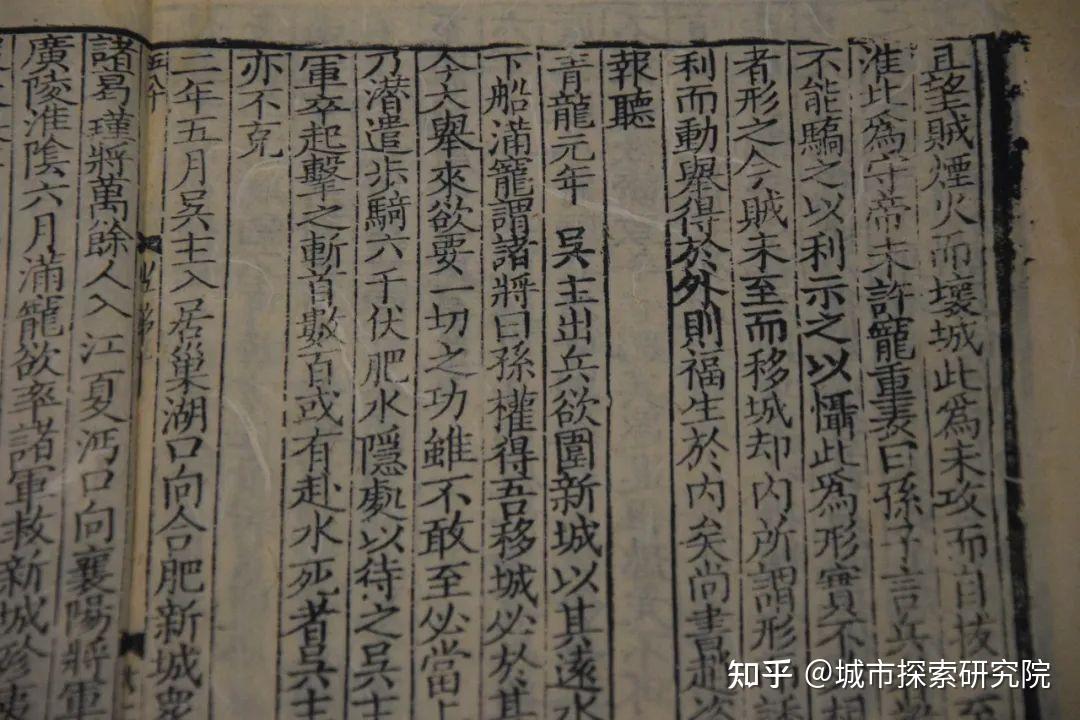 且望賊煙火而壞城此爲未攻而自拔
淮北爲守帝未許寵重表曰孫子言兵
不能驕之以利示之以懾此爲形實不
者形之今賊未至而移城却内所謂形
利而動舉得於外則福生於内矣尚書趙咨
報聽
青龍元年 吳主出兵欲圍新城以其遠水
下船滿寵謂諸將曰孫權得吾移城必於其
今大舉來欲要一切之功雖不敢至必當上
乃潛遣步騎六千伏肥水隱處以待之吳主
軍卒起擊之斬首數百或有赴水死者吳主
亦不克
二年五月吳主入居巢湖口向合肥新城衆
諸曷瑾將萬餘人入江夏沔口向襄陽將軍
廣陵淮陰六月滿寵欲率諸軍救新城殄夷
知乎 @城市探索研究院